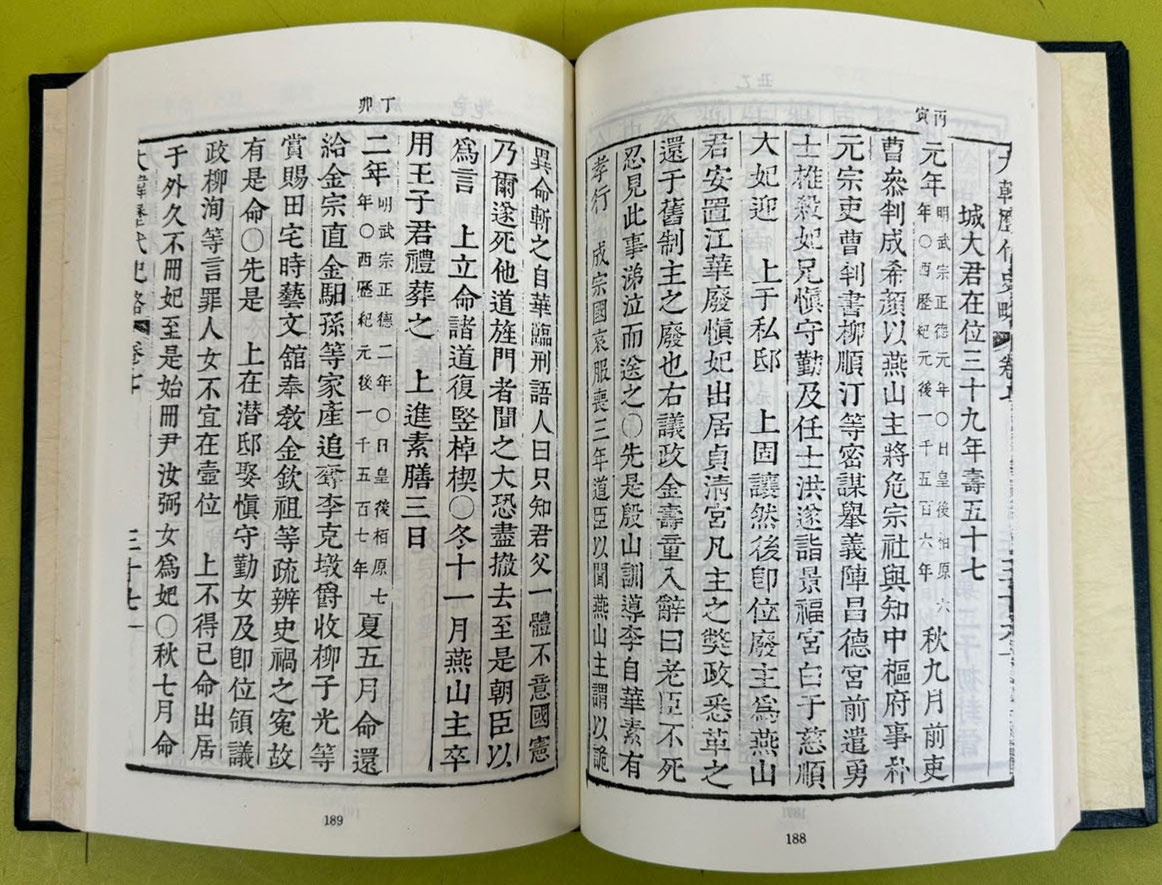 大韓歷代史略 卷七
城大君在位三十九年壽五十七
丙寅
元年 明武宗正德元年〇日皇後柏原六年〇西歷紀元後一千五百六年 秋九月前吏
曹叅判成希顔以燕山主將危宗社與知中樞府事朴
元宗吏曹判書柳順汀等密謀擧義陣昌德宮前遣勇
士椎殺妃兄愼守勤及任士洪遂詣景福宮白于慈順
大妃迎 上于私邸 上固讓然後卽位廢主爲燕山
君安置江華廢愼妃出居貞清宮凡主之獘政悉革之
還于舊制主之廢也右議政金壽童入辭曰老臣不死
忍見此事涕泣而送之〇先是殷山訓導李自華素有
孝行 成宗國哀服喪三年道臣以聞燕山主謂以詭
188
異命斬之自華臨刑語人曰只知君父一體不意國憲
乃爾遂死他道旌門者聞之大恐盡撤去至是朝臣以
爲言 上立命諸道復竪棹楔〇冬十一月燕山主卒
用王子君禮葬之 上進素膳三日
丁卯
二年 明武宗正德二年〇日皇後柏原七年〇西歷紀元後一千五百七年 夏五月命還
給金宗直金馹孫等家產追奪李克墩爵收柳子光等
賞賜田宅時藝文舘奉敎金欽祖等疏辨史禍之寃故
有是命〇先是 上在潛邸娶愼守勤女及卽位領議
政柳洵等言罪人女不宜在壼位 上不得已命出居
于外久不冊妃至是始冊尹汝弼女爲妃〇秋七月命
大韓歷代史略 卷七 三十七
189